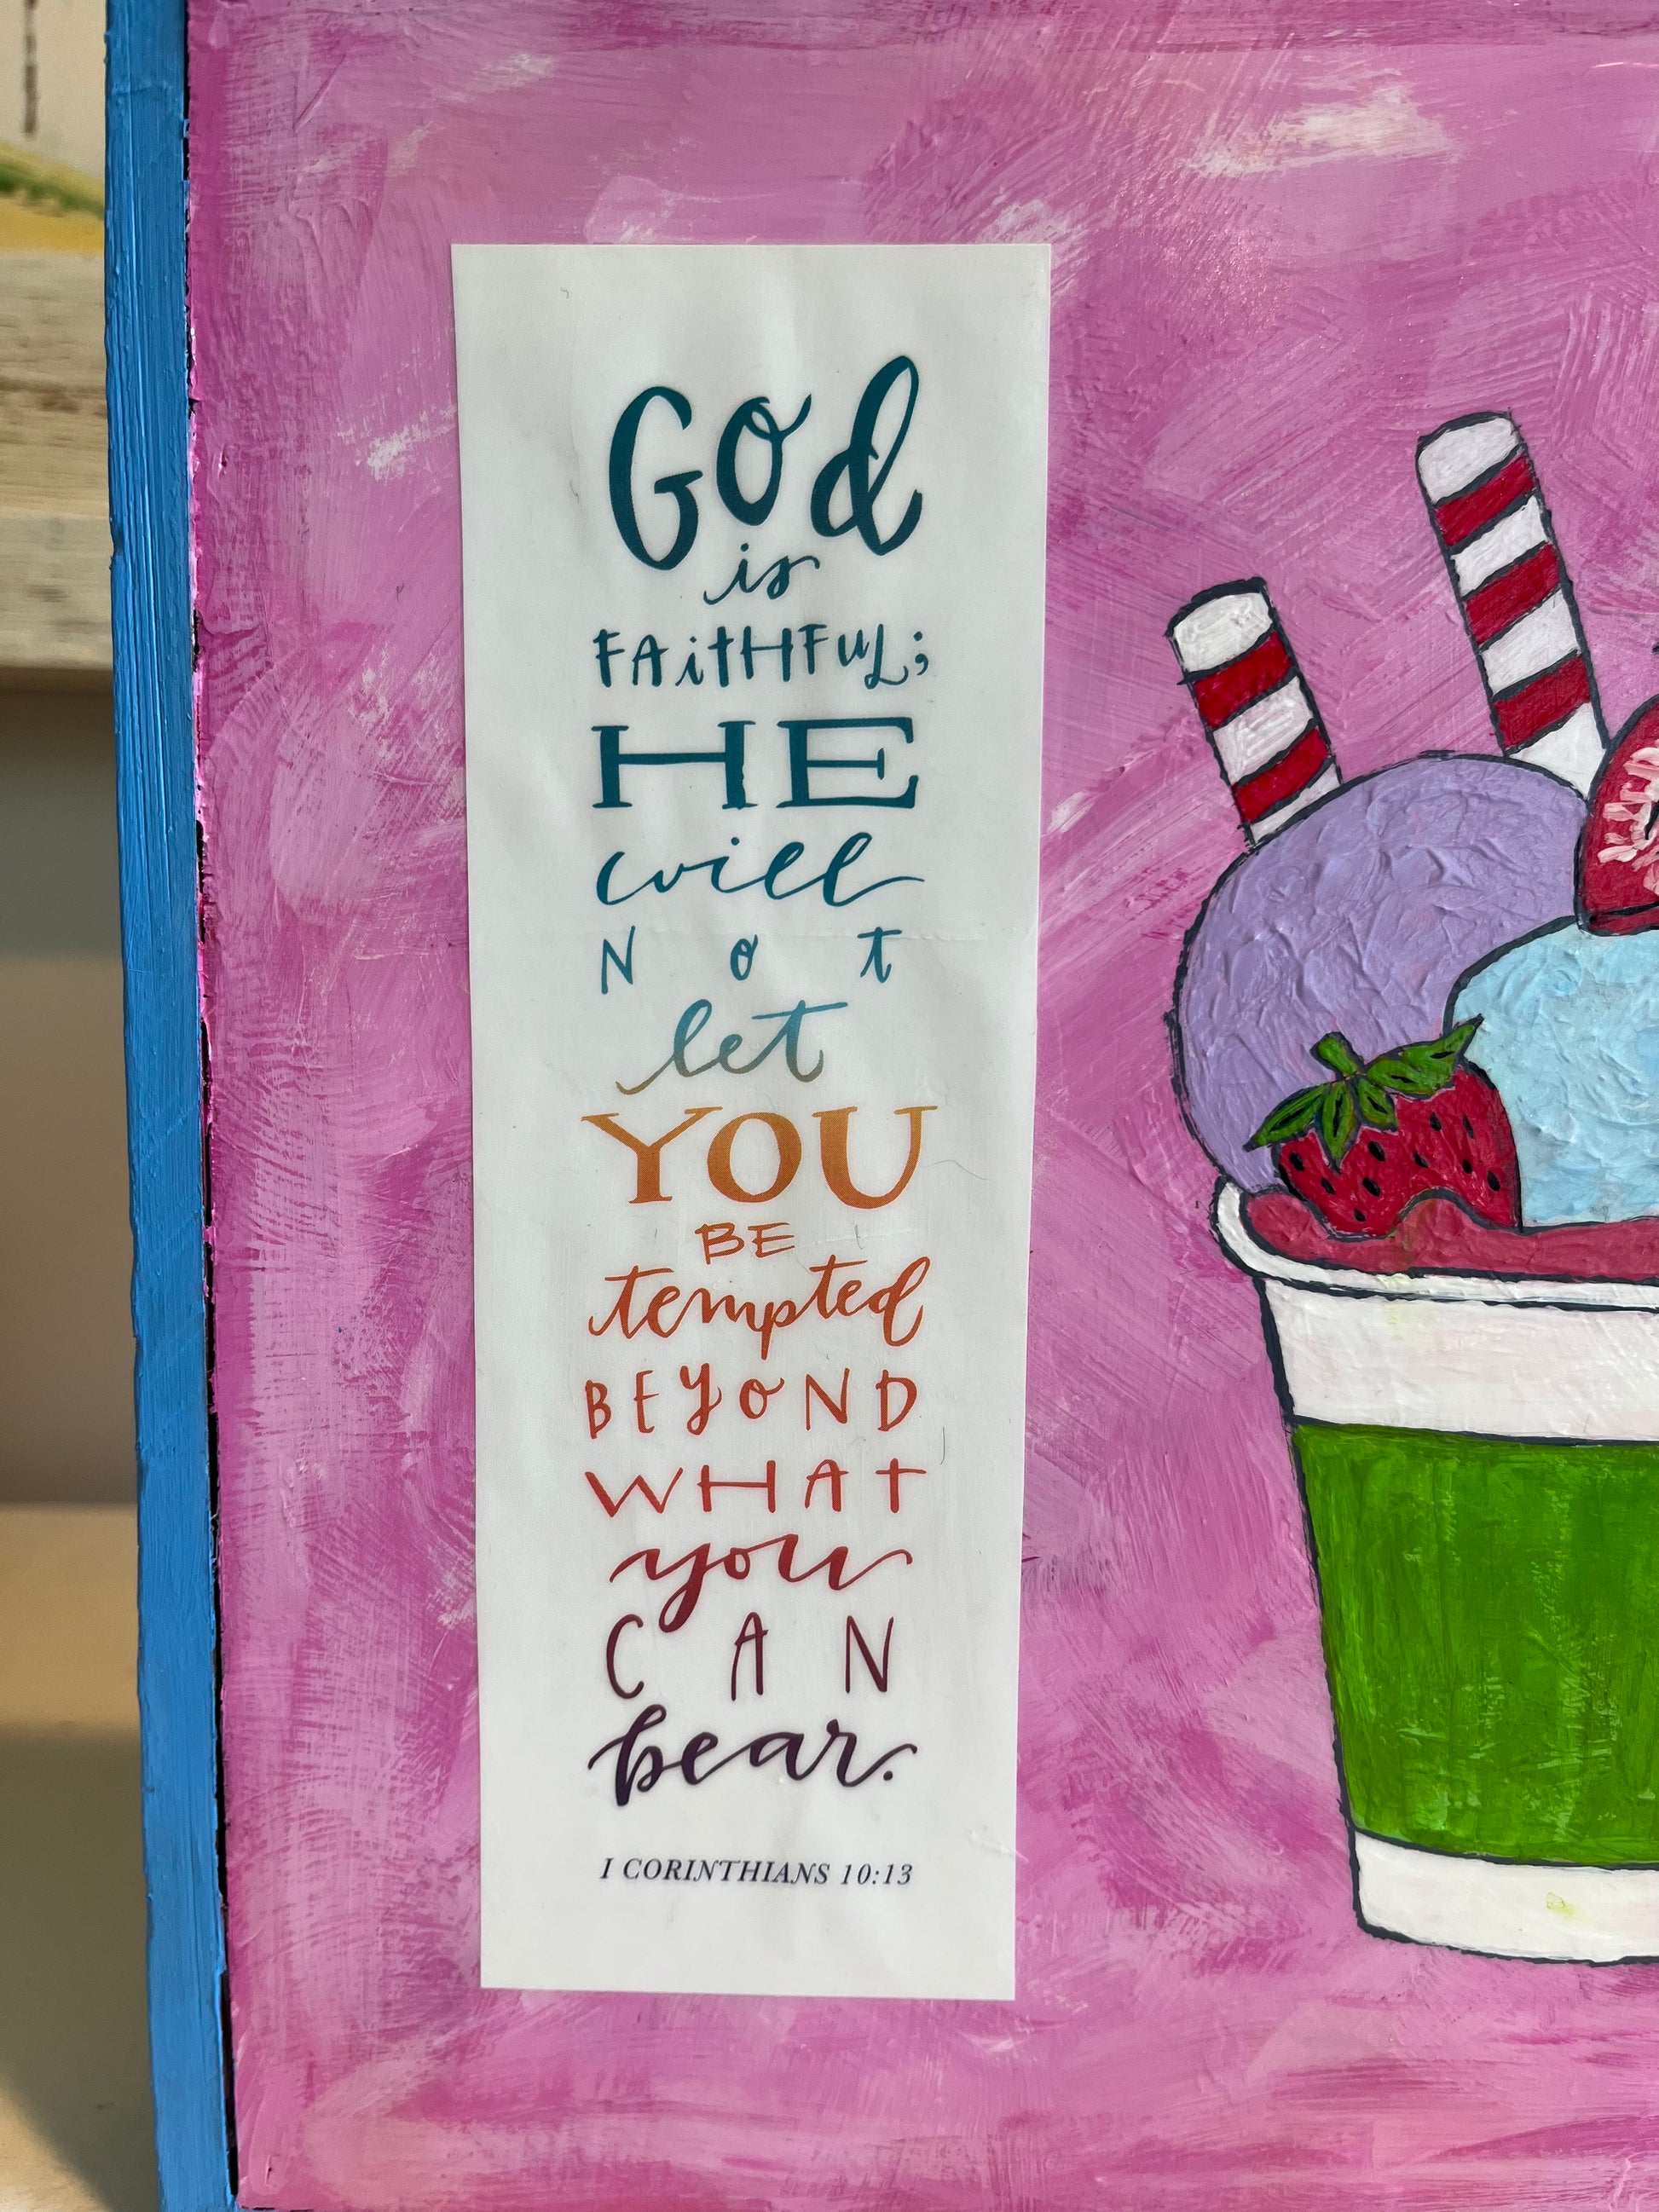 God
is
FAiTHFUL;
HE
will
NoT
let
YOU
BE
tempted
BEYOND
WHAT
you
CAN
bear.
I CORINTHIANS 10:13